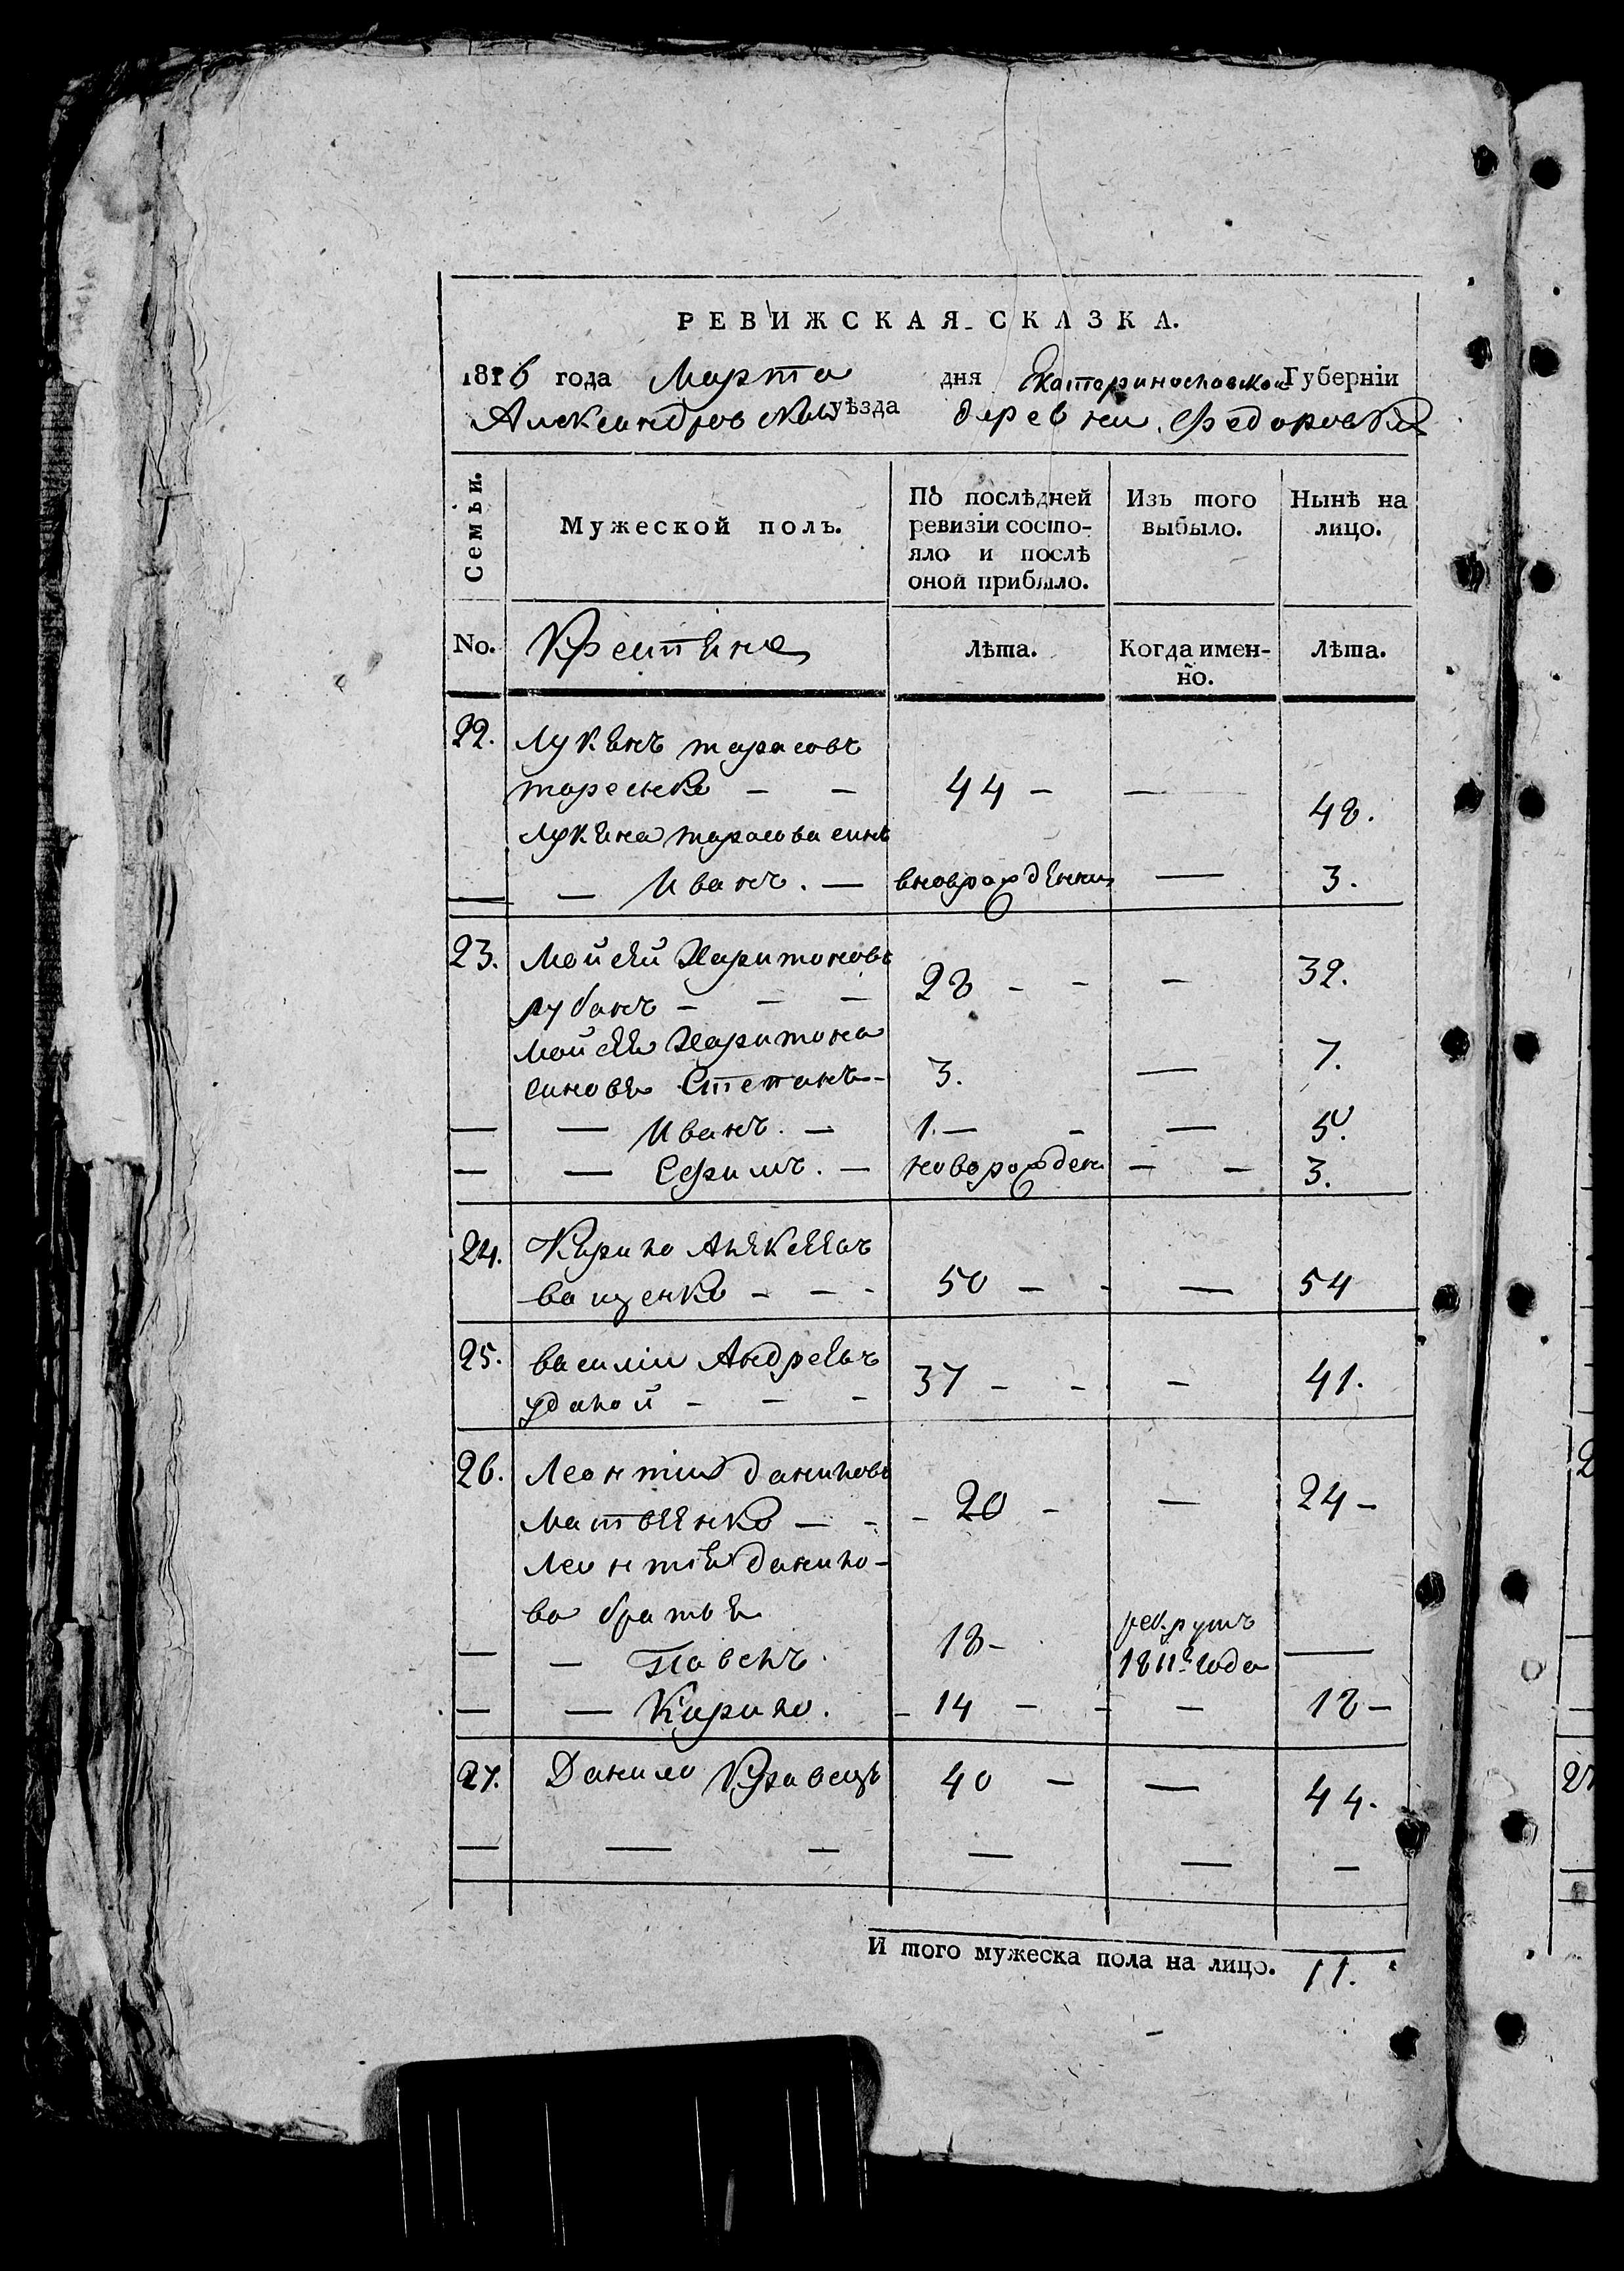 РЕВИЖСКАЯ СКАЗКА.
1816 года Марта дня Екатеринославской Губерніи
Александровскаго уѣзда деревни Федоровки
Семьи.
Мужеской полъ.
По послѣдней ревизіи состо-
яло и послѣ оной прибыло.
Изъ того выбыло.
Нынѣ на лицо.
No. Крестяне лѣта. Когда имен-
но. лѣта.
22. Лукянъ тарасовъ
таренко — — 44 — — 48.
Лукяна тарасова синъ
— — Иванъ. — вноврожденни — 3.
23. Мойсѣй Харитоновъ
рубанъ — — — 28 — — — 32.
Мойсѣя Харитона
синовя Степанъ — 3. — 7.
— — Иванъ. — 1. — — — 5.
— — Ефимъ. — новорожден — — 3.
24. Кирило Алѣксѣевъ
ващенко — — — 50 — — — 54
25. василіи Андреевъ
удалой — — — 37 — — — 41.
26. Леонтіи даниловъ
Матвѣенко — — — 20 — — 24 —
Леонтія данило-
ва братья
— — Павелъ. 18 — рекрутъ
1811го года —
— — Кирило. — 14 — — — 18 —
27. Данило Кравецъ 40 — — 44.
— — — — — —
И того мужеска пола на лицо. 11.